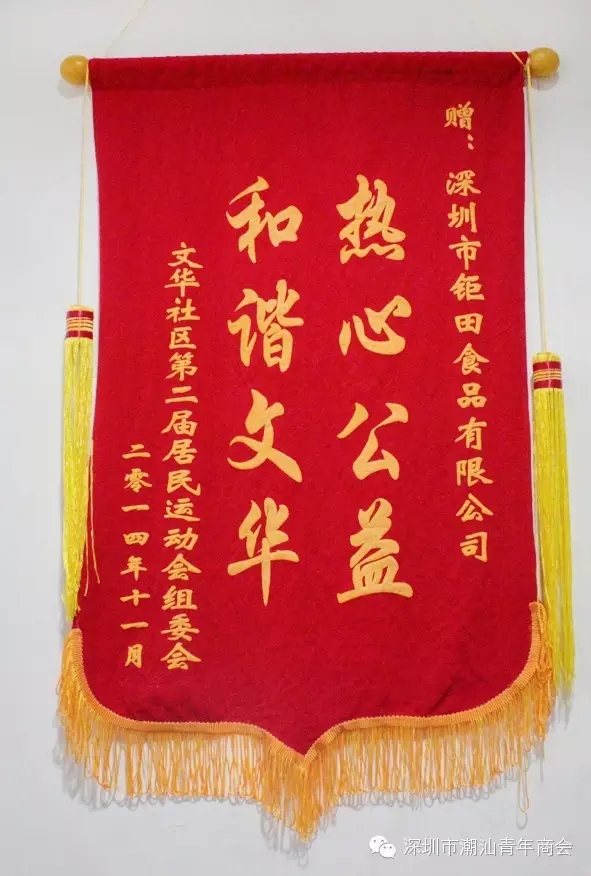 赠：深圳市钜田食品有限公司
热心公益
和谐文华
文华社区第二届居民运动会组委会
二零一四年十一月
深圳市潮汕青年商会